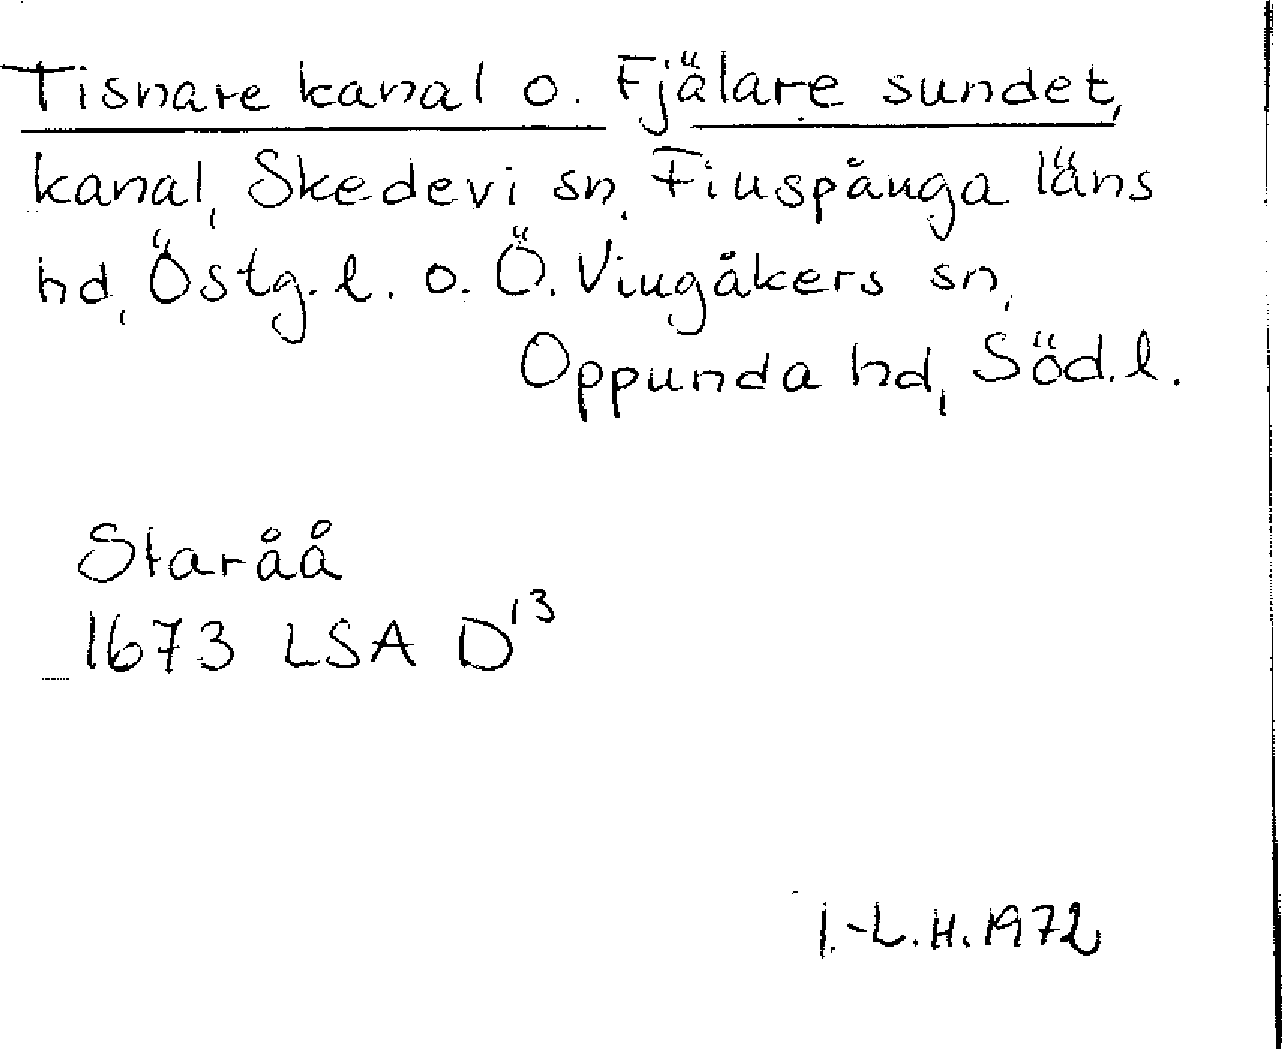 Tisnare kanal o. Fjälare sundet,
kanal, Skedevi sn, Finspånga läns
hd, Östg. l. o. Ö. Vingåkers sn,
Oppunda hd, Söd. l.
Staråå
1673 LSA D¹³
I.-L.H. 1972